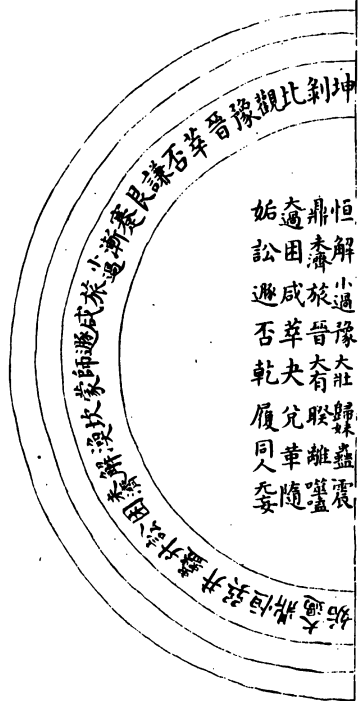 坤剝比觀豫晉萃否謙艮蹇漸小過旅咸遯師蒙坎渙解未濟困訟升蠱井巽恒鼎大過姤
恒解小過豫大壯歸妹豐震
鼎未濟旅晉大有睽離噬嗑
大過困咸萃夬兌革隨
姤訟遯否乾履同人无妄